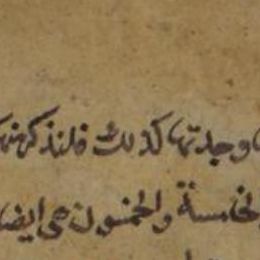 وجدتها كذلك فلنذكر منها
الخامسة والخمسون هي ايضا